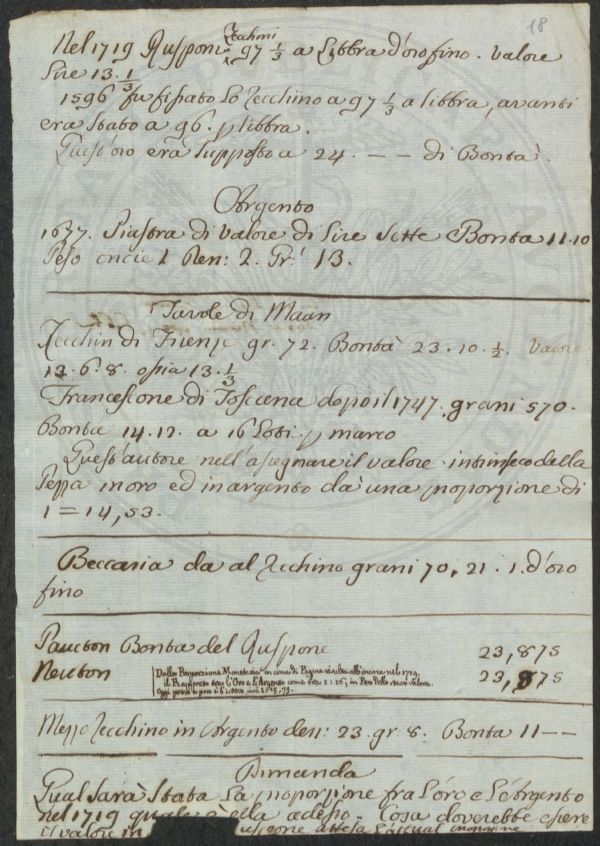 18
Zecchini
Nel 1719 Rusponi 97 1/3 a Libbra d'oro fino. Valore
Lire 13. 1/3
1596 fu fissato lo Zecchino a 97 1/3 a libbra, avanti
era stato a 96. p libbra.
Quest'oro era supposto a 24. - - di Bontà.
Argento
1677. Piastra di valore di Lire Sette Bontà 11.10
Peso oncie 1 Den: 2. Gr: 13.
Tavole di Maan
Zecchin di Firenze gr. 72. Bontà 23. 10. 1/2. Valore
13. 6. 8. ossia 13. 1/3
Francescone di Toscana dopo il 1747. grani 570.
Bontà 14. 17. a 16 Loti p marco
Quest'autore nell'assegnare il valore intrinseco della
Pezza in oro ed in argento dà una proporzione di
1 = 14,53.
Beccaria da al Zecchino grani 70. 21. 1. d'oro
fino
Paucton Bontà del Ruspone 23,875
Newton 23,875
Dalla Proporzione Monetaria in cima di Pagina risulta che ancora nel 1719.
il Rapporto tra l'Oro e l'Argento come
Mezzo Zecchino in Argento den: 23. gr: 8. Bontà 11 - -
Dimanda
Qual sarà stata la proporzione fra l'oro e l'Argento
nel 1719 quale è ella adesso. Cosa doverebbe essere
il valore in attesa l'attual